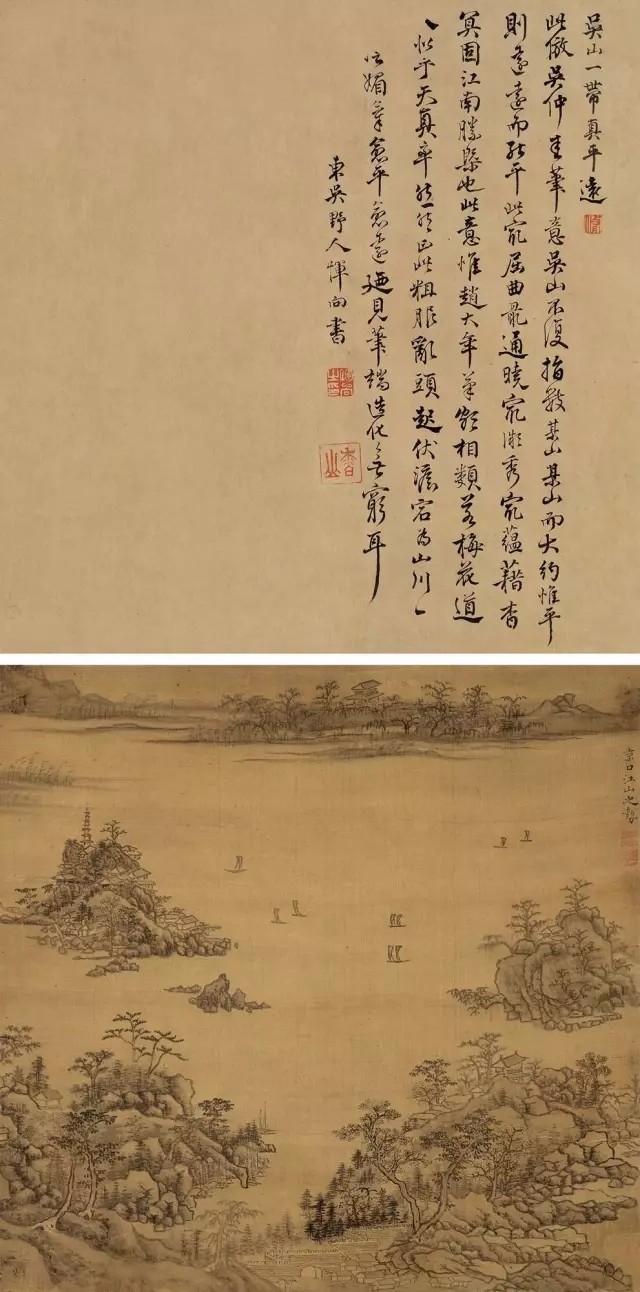 吳山一帶真平遠
此倣吳仲圭筆意吳山不復指數某山某山而大約惟平
則遠遠而能平此最屈曲最通曉最漸秀最蘊藉杳
冥固江南勝槩也此意惟趙大年筆與相類若梅花道
人似乎天真率然一然正此粗服亂頭起伏澹宕為山川一
媚筆愈平愈遠 見筆端造化之無窮耳
東吳野人惲向書
香山
京口江山之勢